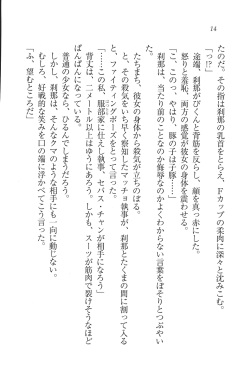 14
たのだ。その指は刹那の乳首をとらえ、Dカップの柔肉に深々と沈みこむ。
「っ!?」
途端、刹那がびくんと背筋を反らし、顔を真っ赤にした。
怒りと羞恥、両方の感覚が彼女の身体を震わせる。
「こ、このっ、やはり、豚の子は子豚……」
刹那は、当たり前のことなのか侮辱なのかよくわからない言葉をぼそりとつぶやい
た。
たちまち、彼女の身体から殺気が立ちのぼる。
と、その殺気をいち早く察知したマッチョ執事が、刹那とたくまの間に割って入る
と、ファイティングポーズをとって言った。
「……この私、服部家に仕えし執事、セバス・チャンが相手になろう」
背丈は、二メートル以上はゆうにあろう。しかも、スーツが筋肉で裂けそうなほど
ぱんぱんになっている。
普通の少女なら、ひるんでしまうだろう。
しかし、刹那は、そんなクマのような相手にも一向に動じない。
むしろ、好戦的な笑みを口の端に浮かべてこう言った。
「ふ、望むところだ」